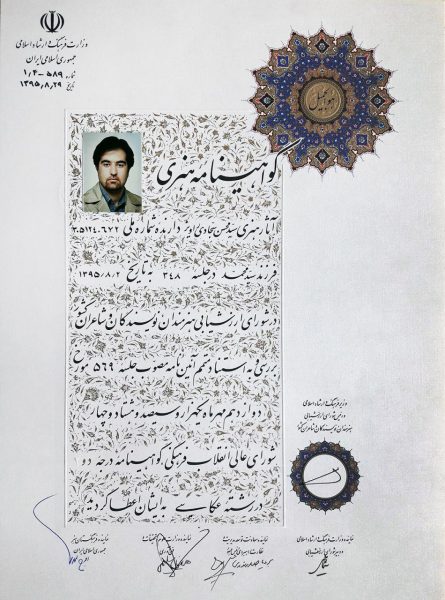 وزارت فرهنگ و ارشاد اسلامی
جمهوری اسلامی ایران
شماره ۱/۴-۵۸۹
تاریخ ۱۳۹۵/۸/۲۹
هوالجمیل
گواهینامه هنری
آثار هنری سید محسن سجادی دارنده شماره ملی ۳۰۵۱۲۴۰۶۷۲
فرزند سید محمد در جلسه ۳۴۸ به تاریخ ۱۳۹۵/۸/۲
در شورای ارزشیابی هنرمندان نویسندگان و شاعران کشور
بررسی و به استناد متمم آئین نامه مصوب جلسه ۵۶۹ مورخ
دوازدهم مهرماه یکهزار و سیصد و هشتاد و چهار
شورای عالی انقلاب فرهنگی گواهینامه درجه دو
در رشته عکاسی به ایشان اعطا گردید
وزیر فرهنگ و ارشاد اسلامی
و رئیس شورای ارزشیابی
هنرمندان نویسندگان و شاعران کشور
نماینده وزارت فرهنگ و ارشاد اسلامی
و دبیر شورای ارزشیابی
نماینده وزارت علوم تحقیقات و
فناوری
نماینده فرهنگستان هنر
جمهوری اسلامی ایران